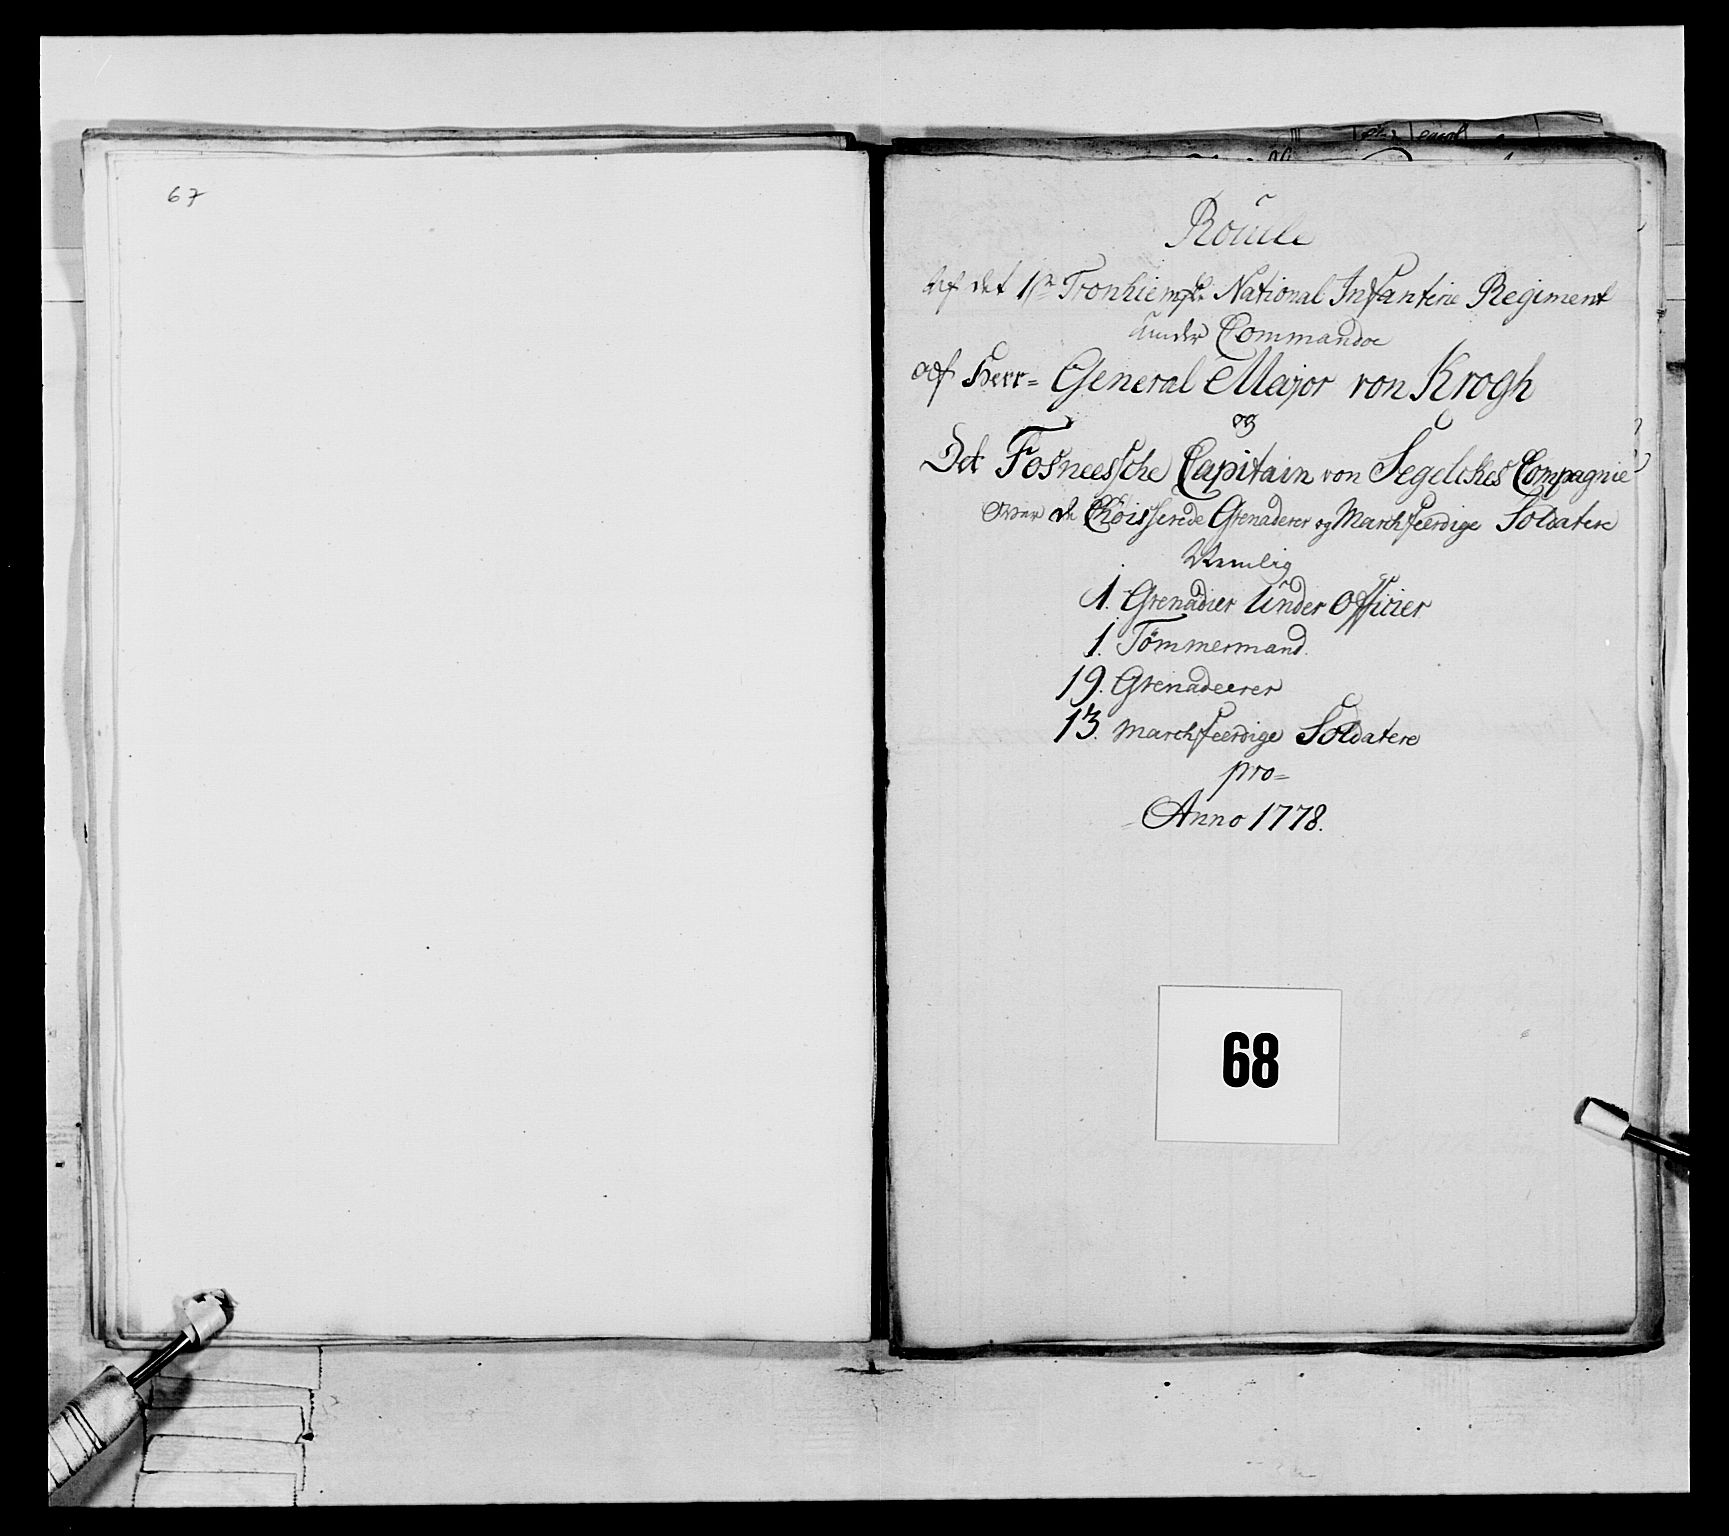 67
Roulle
Af det 1ste Tronhiemske National Infanterie Regiment
under Commandoe
af Herr= General Major von Krogh
og
Det Fosneessche Capitain von Segelckes Compagnie
Over de Choisserede Grenaderer og Marchfeerdige Soldatere
Nemlig
1. Grenadier Under Officier
1. Tömmermand.
19. Grenadeerer
13. Marchfeerdige Soldatere
pro=
Anno 1778.
68